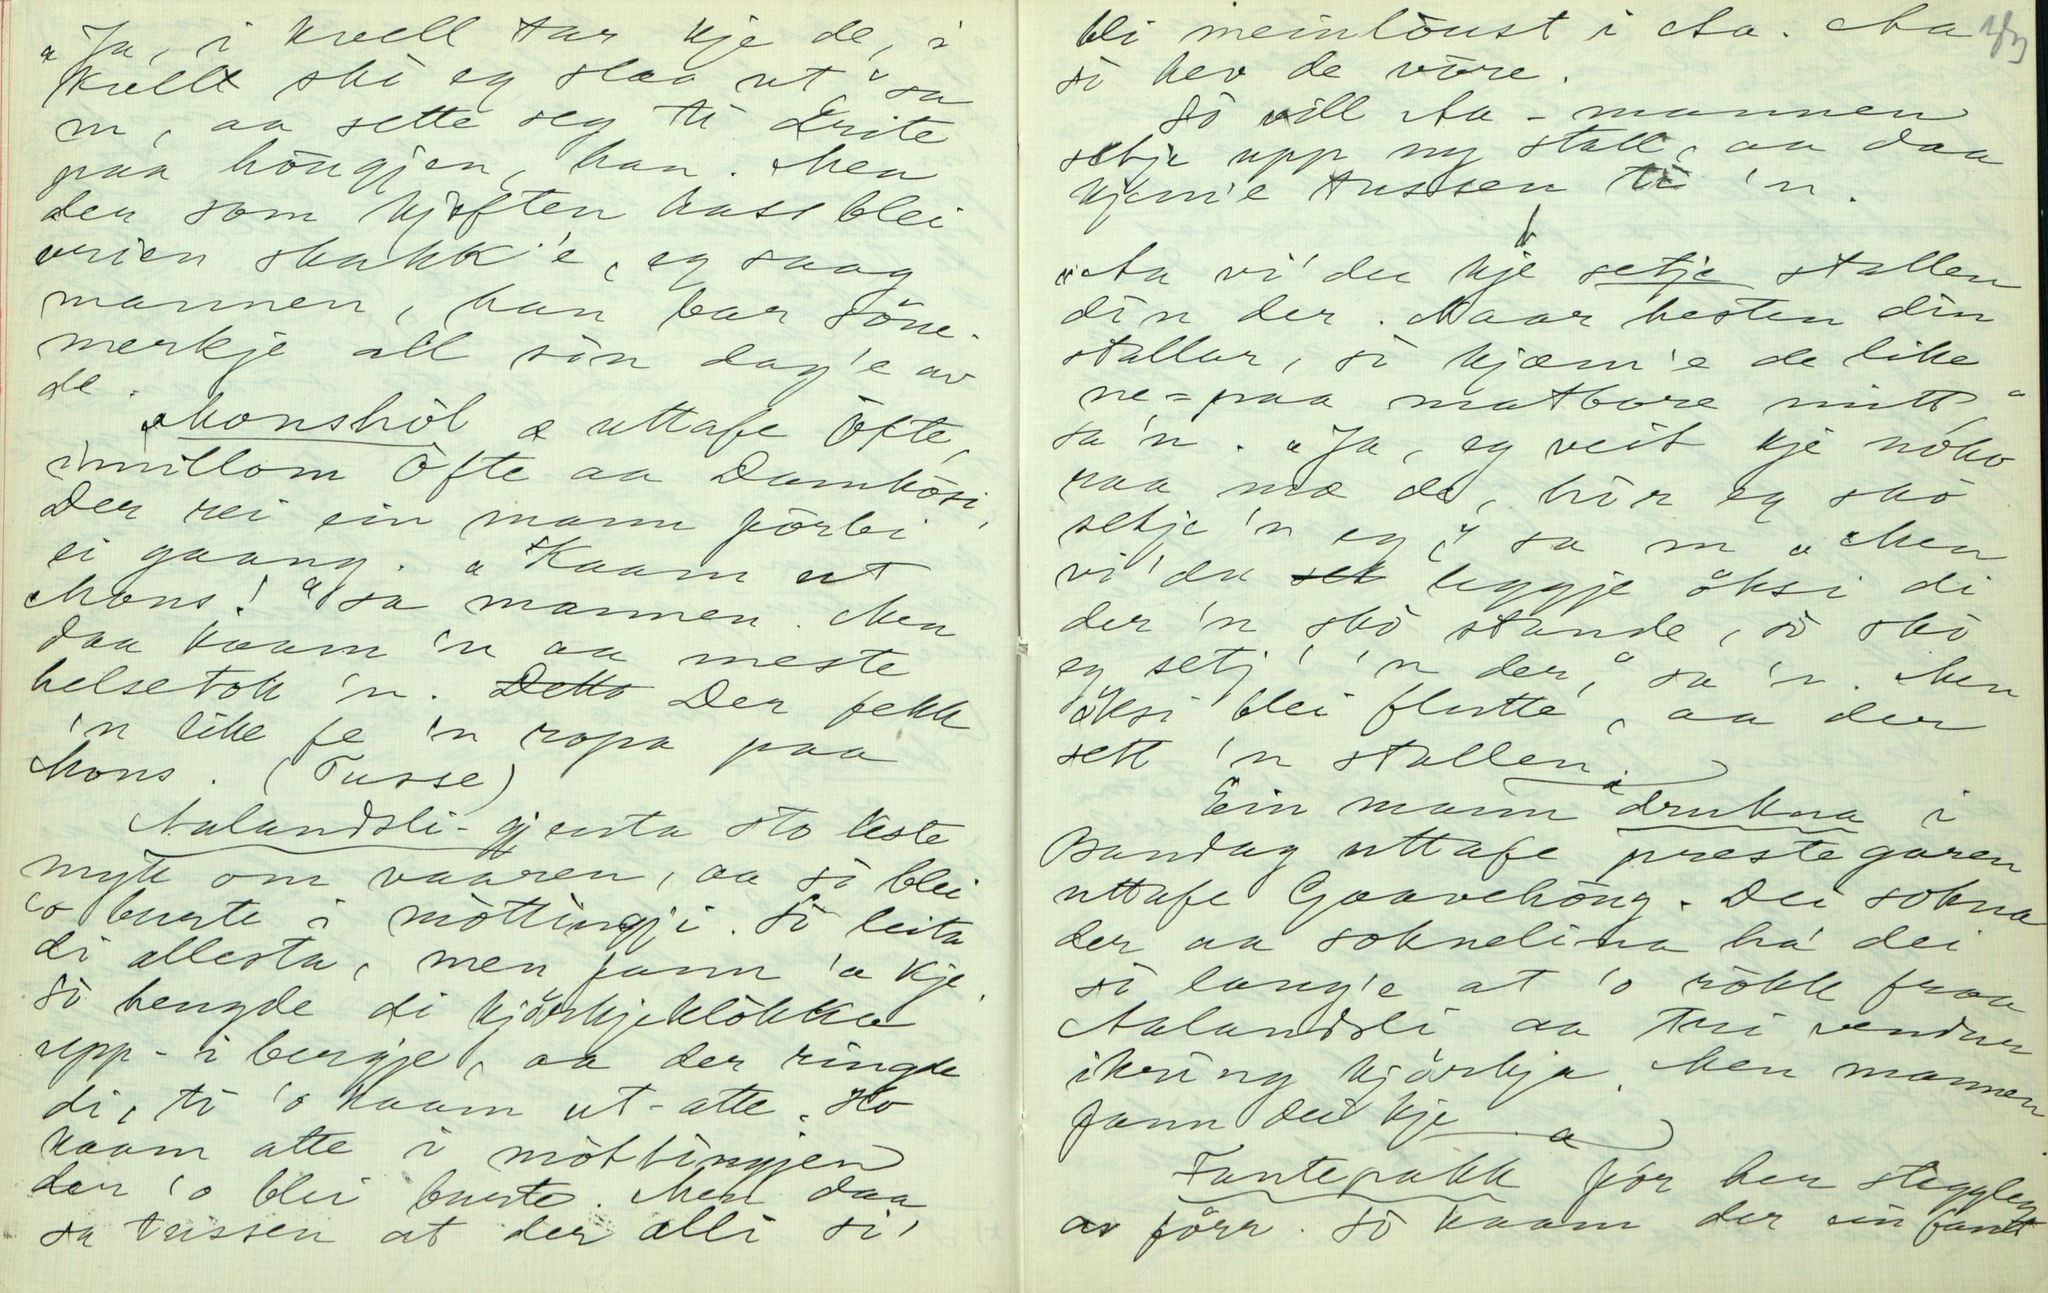 „Ja, i kvell tar kje de, i
kvell skò eg slaa ut“ sa
'n, aa sette seg ti drite
paa höugjen, han. Men
der som kjæften hass blei
vrien skakk'e, eg saag
mannen, han bar söne-
merkje all sin dag'e av
de.
Monshòl æ uttafe Òfte,
imillom Òfte aa Damkåsi,
Der rei ein mann förbi
ei gaang. „Kaam ut
Mons!“ sa mannen. Men
daa kaam 'n aa meste
helsetok 'n. Detto Der fekk
'n like fe 'n ropa paa
Mons. (Tusse)
Aalandsli-gjenta sto keste
myk om vaaren, aa sò blei
'o burte i mòttingji. Sò leita
di allesta, men fann 'o kje,
Sò hengde di kjörkjeklòkka
upp-i bergje, aa der ringde
di, ti 'o kaam ut-atte. Ho
kaam atte i mòttingjen
der 'o blei burte. Men daa
sa tussen at der alli si'
bli meinlöust i Aa. Aa
sò hev de vòre.
Sò vill Aa-mannen
setje upp ny stall, aa daa
kjem'e tussen ti 'n.
„Aa vi' du kje setje stallen
din der. Naar hesten din
stallar, sò kjæm'e de like
ne-paa matbore mitt,“
sa 'n. „Ja, eg veit kje nòko
raa mæ de, hòr eg skò
setje 'n eg,“ sa 'n „Men
vi' du set leggje öksi di
der 'n skò stande, sò skò
eg setj' 'n der,“ sa 'n. Men
öksi blei flutte, aa der
sett 'n stallen.
Ein mann drukna i
Bandag uttafe prestegaren
uttafe Gaavehöug. Dei sokna
der aa soknelina ha' dei
sò lang'e at 'o ròkk fraa
Aalandsli aa tri vendur
ikring kjörkja. Men mannen
fann dei kje
Fantepakk fòr her styggleg
av förr. Sò kaam der ein fant